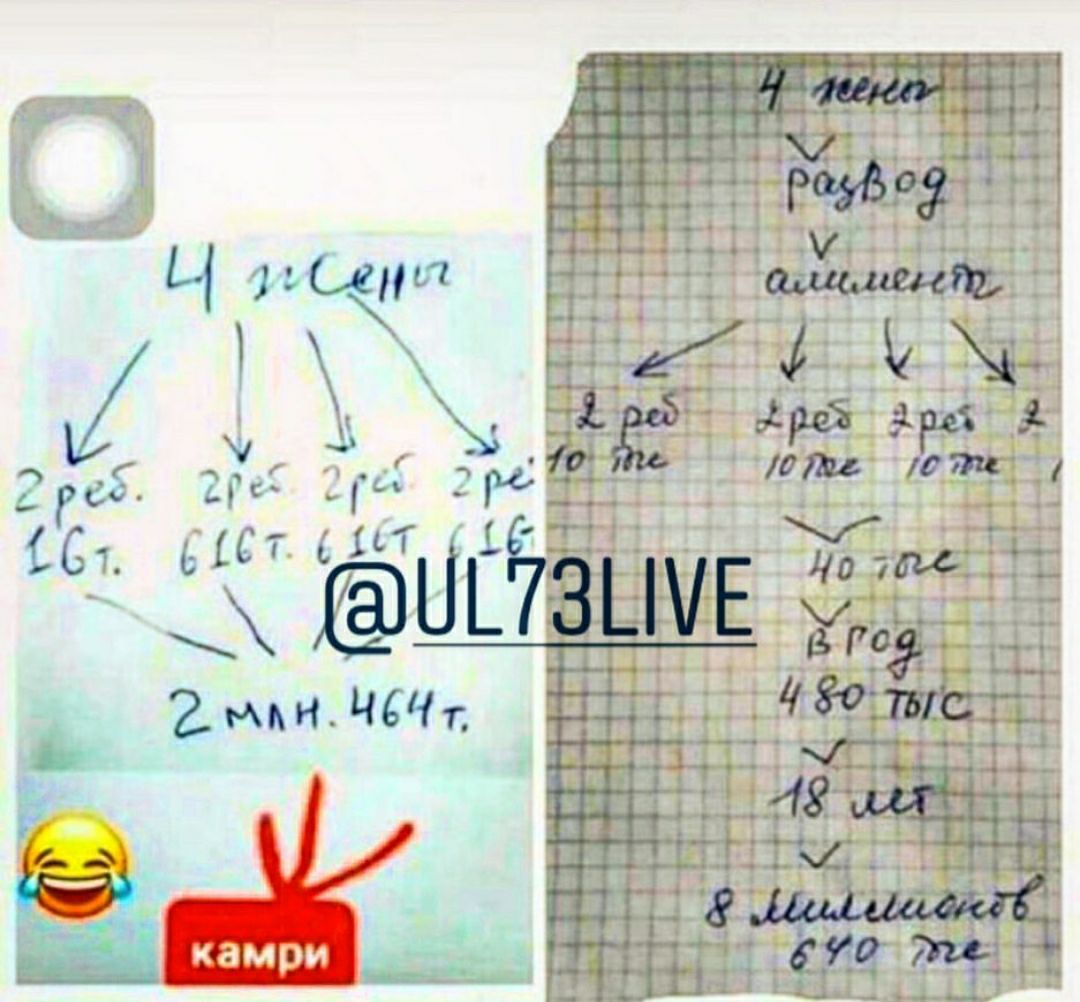 4 жены
2 реб. 2 реб. 2 реб. 2 ре
616т. 616т. 616т 616
2 млн. 464т.
камри
@UL73LIVE
4 жены
развод
алименты
2 реб 2 реб 2 реб 2
10 тыс 10 тыс 10 тыс 1
40 тыс
в год
480 тыс
18 лет
8 миллионов
640 тыс